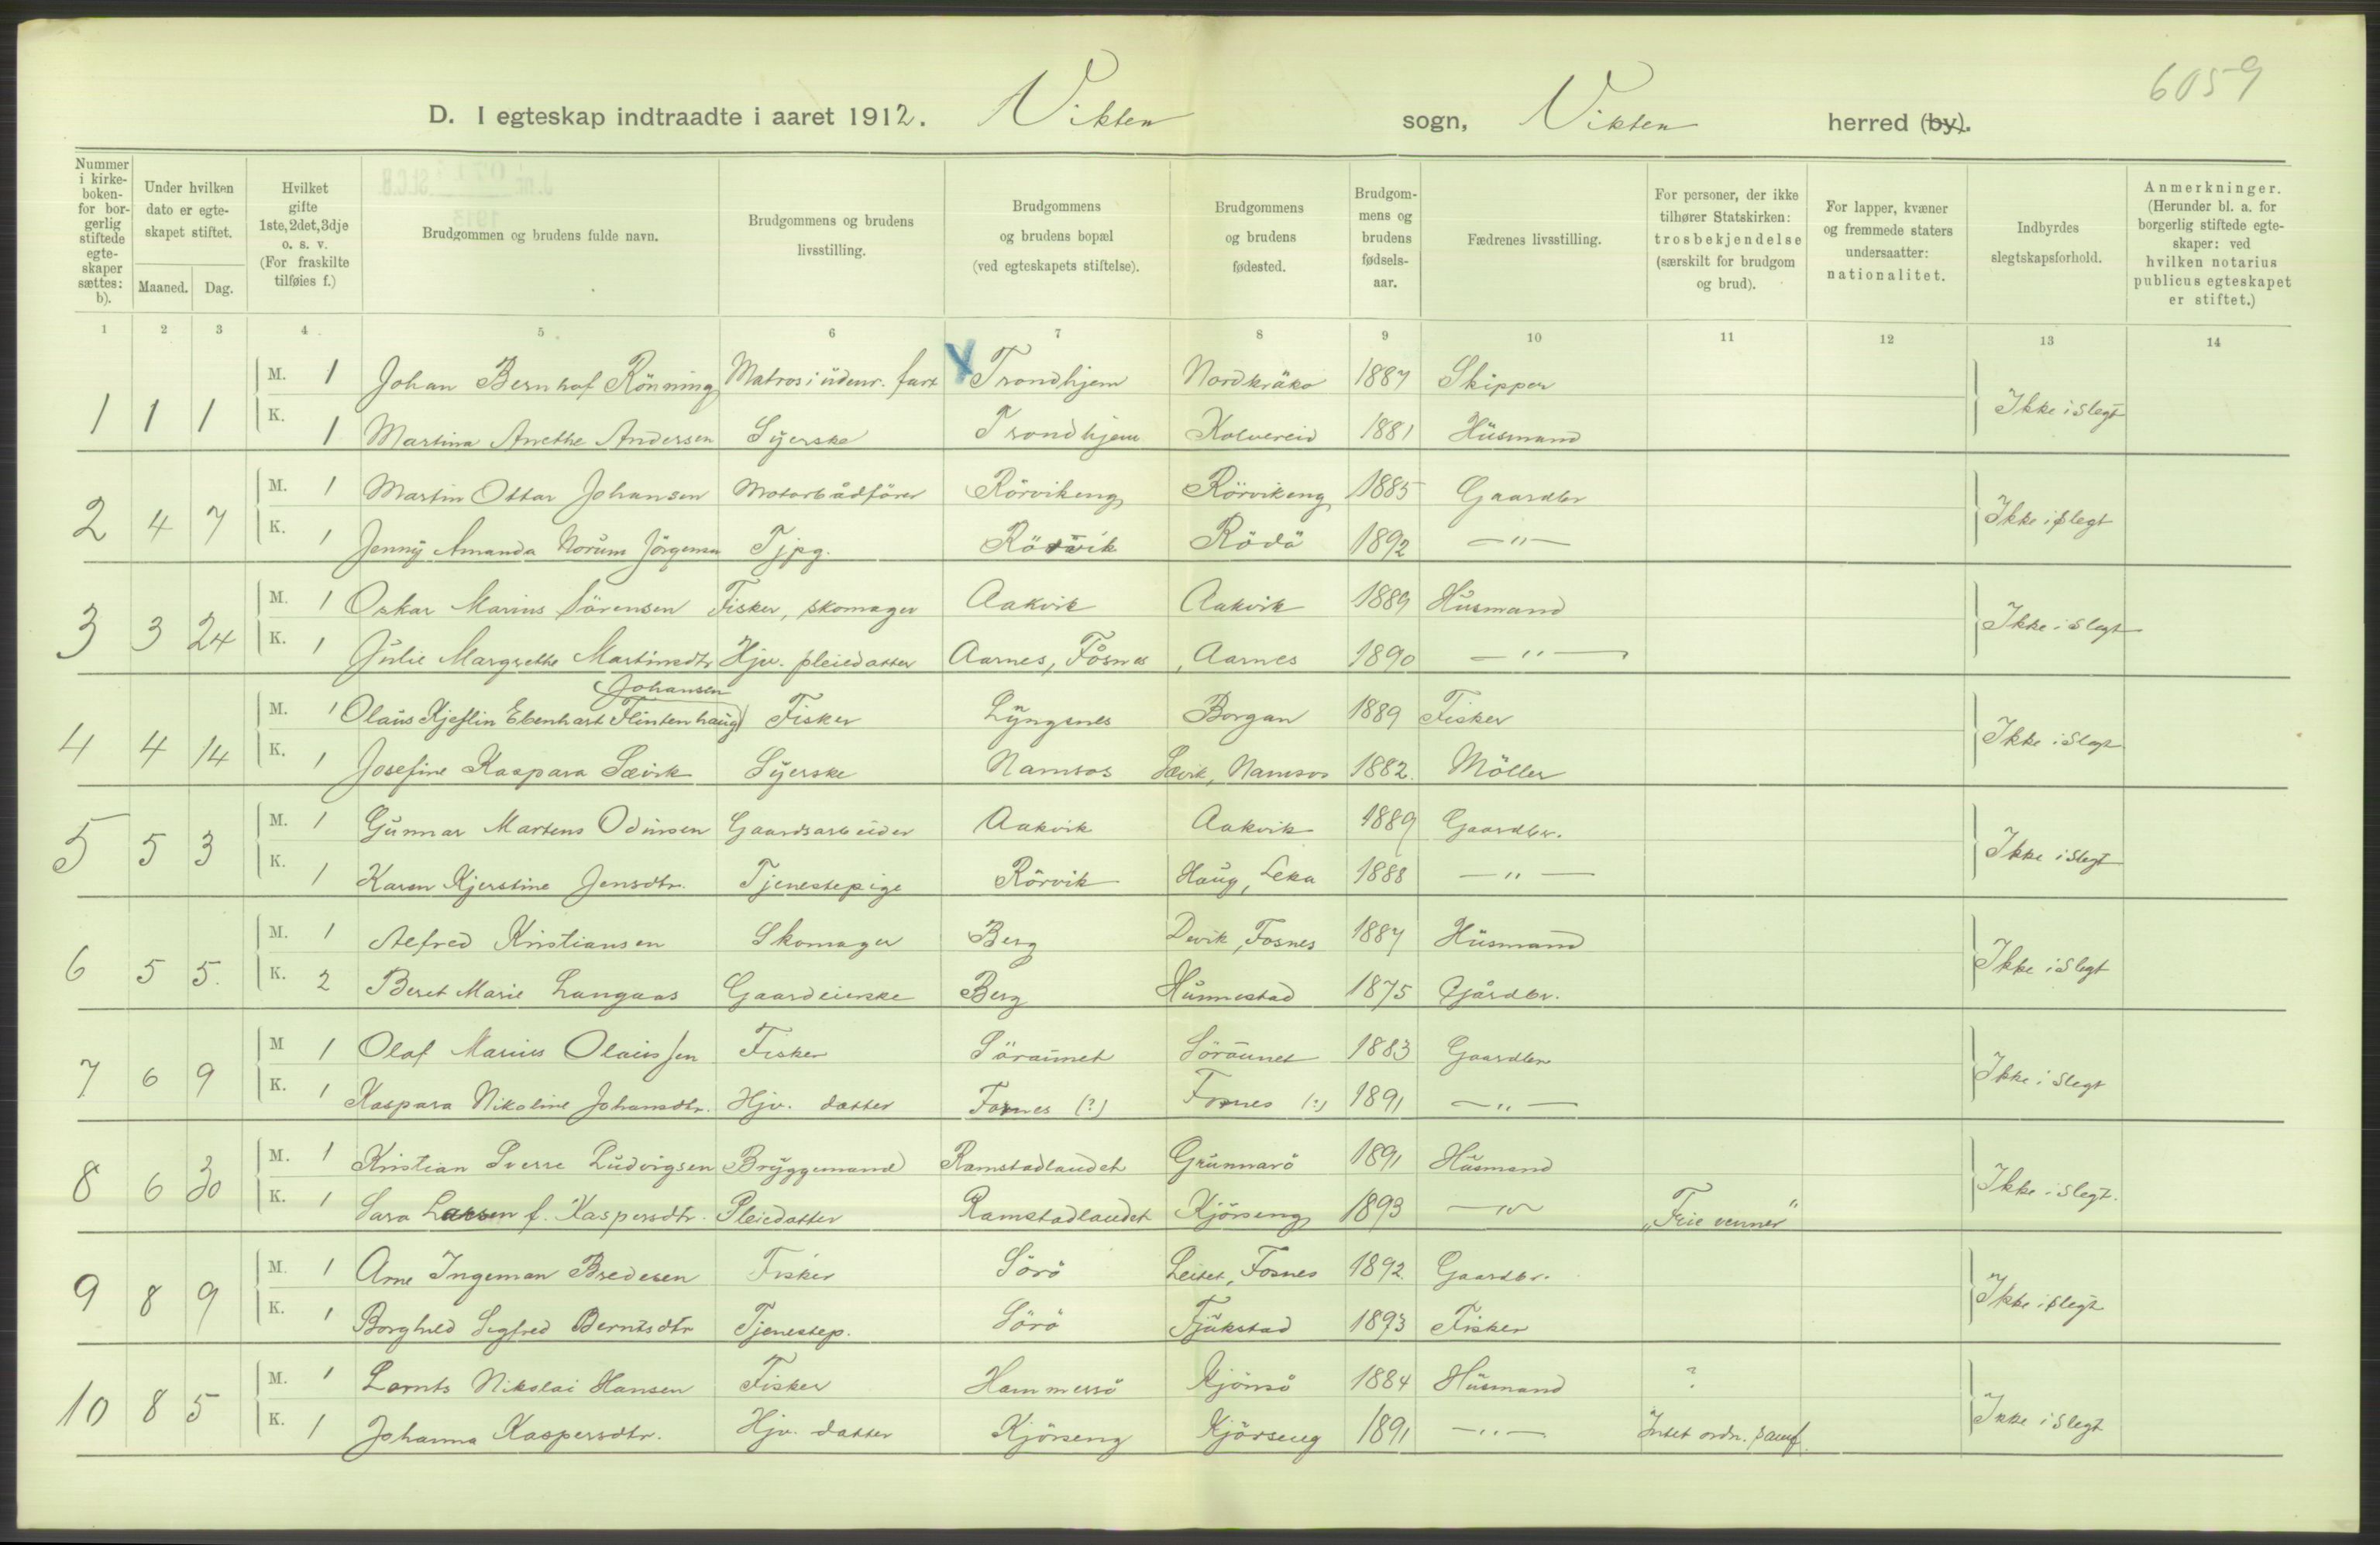 6059
D. I egteskap indtraadte i aaret 1912. Vikten sogn, Vikten herred (by).
Nummer i kirke-boken- for bor-gerlig stiftede egte-skaper sættes: b).
Under hvilken dato er egte-skapet stiftet.
Maaned. Dag.
Hvilket gifte 1ste, 2det, 3dje o. s. v. (For fraskilte tilføies f.)
Brudgommen og brudens fulde navn.
Brudgommens og brudens livsstilling.
Brudgommens og brudens bopæl (ved egteskapets stiftelse).
Brudgommens og brudens fødested.
Brudgom-mens og brudens fødsels-aar.
Fædrenes livsstilling.
For personer, der ikke tilhører Statskirken: trosbekjendelse (særskilt for brudgom og brud).
For lapper, kvæner og fremmede staters undersaatter: nationalitet.
Indbyrdes slegtskapsforhold.
Anmerkninger. (Herunder bl. a. for borgerlig stiftede egte-skaper: ved hvilken notarius publicus egteskapet er stiftet.)
1 2 3 4 5 6 7 8 9 10 11 12 13 14
M. 1 Johan Bernhof Rönning Matros i udenr. fart Trondhjem Nordkråkø 1887 Skipper
1 1 1 Ikke i slegt
K. 1 Martina Anethe Andersen Syerske Trondhjem Kolvereid 1881 Husmand
M. 1 Martin Ottar Johansen Motorbådförer Rörvikeng Rörvikeng 1885 Gaardbr
2 4 7 Ikke i slegt
K. 1 Jenny Amanda Norum Jörgensen Tjpg. Rörvik Rödö 1892 —"—
M. 1 Oskar Marius Sörensen Fisker, skomager Aakvik Aakvik 1889 Husmand
3 3 24 Ikke i slegt
K. 1 Julie Margrethe Martinsdtr Hjv. pleiedatter Aarnes, Fosnes Aarnes 1890 —"—
Johansen
M. 1 Olaus Kjeflin Ebenhart Flintenhaug) Fisker Lyngsnes Borgan 1889 Fisker
4 4 14 Ikke i slegt
K. 1 Josefine Kaspara Sævik Syerske Namsos Sævik, Namsos 1882. Möller
M. 1 Gunnar Martens Odinsen Gaardsarbeider Aakvik Aakvik 1889 Gaardbr.
5 5 3 Ikke i slegt
K. 1 Karen Kjerstine Jensdtr. Tjenestepige Rörvik Haug, Leka 1888 —"—
M. 1 Alfred Kristiansen Skomager Berg Devik, Fosnes 1887 Husmand
6 5 5. Ikke i slegt
K. 2 Beret Marie Langaas Gaardeierske Berg Hunnestad 1875 Gårdbr.
M 1 Olaf Marius Olaussen Fisker Söraunet Söraunet 1883 Gaardbr
7 6 9 Ikke i slegt
K. 1 Kaspara Nikoline Johansdtr. Hjv. datter Fornes (?) Fornes (?) 1891 —"—
M. 1 Kristian Sverre Ludvigsen Bryggemand Ramstadlandet Grunnarö 1891 Husmand
8 6 30 Ikke i slegt.
K. 1 Sara Larsen f. Kaspersdtr. Pleiedatter Ramstadlandet Kjörseng 1893 —"— „Frie venner"
M. 1 Arne Ingeman Bredesen Fisker Sörö Leitet, Fosnes 1892. Gaardbr.
9 8 9 Ikke i slegt
K. 1 Borghild Sigfred Berntsdtr Tjenestep. Sörö Fjukstad 1893 Fisker
M. 1 Lornts Nikolai Hansen Fisker Hammersö 1884 Husmand ?
10 8 5 Ikke i slegt
K. 1 Johanna Kaspersdtr. Hjv. datter Kjörseng Kjörseng 1891 —"— Intet ordn. samf.